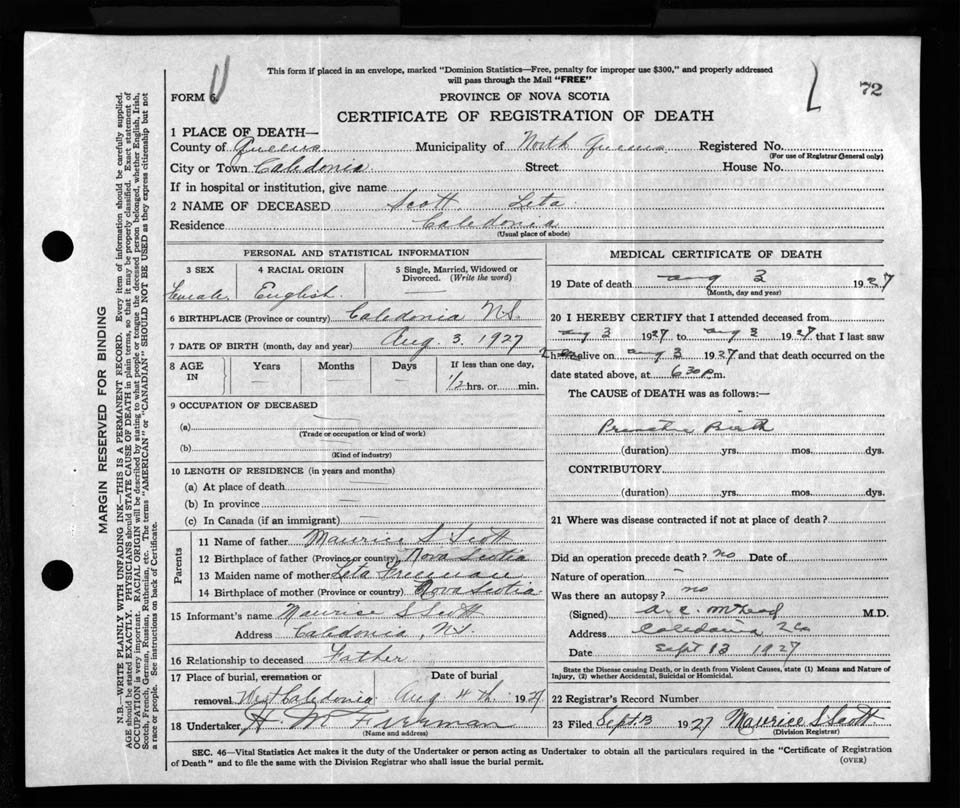 This form if placed in an envelope, marked "Dominion Statistics—Free, penalty for improper use $300," and properly addressed
will pass through the Mail "FREE"
72
FORM 6.
PROVINCE OF NOVA SCOTIA
CERTIFICATE OF REGISTRATION OF DEATH
1 PLACE OF DEATH—
County of Queens Municipality of North Queens Registered No.
(For use of Registrar General only)
City or Town Caledonia Street House No.
If in hospital or institution, give name
2 NAME OF DECEASED Scott Leta
Residence Caledonia
(Usual place of abode)
PERSONAL AND STATISTICAL INFORMATION
3 SEX 4 RACIAL ORIGIN 5 Single, Married, Widowed or Divorced. (Write the word)
Female English
6 BIRTHPLACE (Province or country) Caledonia N.S.
7 DATE OF BIRTH (month, day and year) Aug. 3. 1927
8 AGE IN Years Months Days If less than one day,
1/2 hrs. or min.
9 OCCUPATION OF DECEASED
(a)
(Trade or occupation or kind of work)
(b)
(Kind of industry)
10 LENGTH OF RESIDENCE (in years and months)
(a) At place of death
(b) In province
(c) In Canada (if an immigrant)
Parents
11 Name of father Maurice S Scott
12 Birthplace of father (Province or country) Nova Scotia
13 Maiden name of mother Leta Freeman
14 Birthplace of mother (Province or country) Nova Scotia
15 Informant's name Maurice S Scott
Address Caledonia, N.S.
16 Relationship to deceased Father
17 Place of burial, cremation or
removal West Caledonia Aug 4th. 1927
18 Undertaker H. M Freeman
(Name and address)
MEDICAL CERTIFICATE OF DEATH
19 Date of death Aug 3 1927
(Month, day and year)
20 I HEREBY CERTIFY that I attended deceased from
Aug 3 1927 to Aug 3 1927 that I last saw
h alive on Aug 3 1927 and that death occurred on the
date stated above, at 6 30 P.m.
The CAUSE of DEATH was as follows:—
Premature Birth
(duration) yrs. mos. dys.
CONTRIBUTORY
(duration) yrs. mos. dys.
21 Where was disease contracted if not at place of death?
Did an operation precede death? no Date of
Nature of operation –
Was there an autopsy? no
(Signed) M.D.
Address Caledonia
Date Sept 13 1927
State the Disease causing Death, or in death from Violent Causes, state (1) Means and Nature of
Injury, (2) whether Accidental, Suicidal or Homicidal.
22 Registrar's Record Number
23 Filed Sept. 13 1927 Maurice S Scott
(Division Registrar)
SEC. 46—Vital Statistics Act makes it the duty of the Undertaker or person acting as Undertaker to obtain all the particulars required in the "Certificate of Registration
of Death" and to file the same with the Division Registrar who shall issue the burial permit.
(OVER)
MARGIN RESERVED FOR BINDING
N.B.—WRITE PLAINLY WITH UNFADING INK—THIS IS A PERMANENT RECORD. Every item of information should be carefully supplied.
AGE should be stated EXACTLY. PHYSICIANS should STATE CAUSE OF DEATH in plain terms, so that it may be properly classified. Exact statement of
OCCUPATION is very important. RACIAL ORIGIN will be described by stating to what people or tongue the deceased person belonged, whether English, Irish,
Scotch, French, German, Russian, Ruthenian, etc. The terms "AMERICAN" or "CANADIAN" SHOULD NOT BE USED as they express citizenship but not
a race or people. See instructions on back of Certificate.